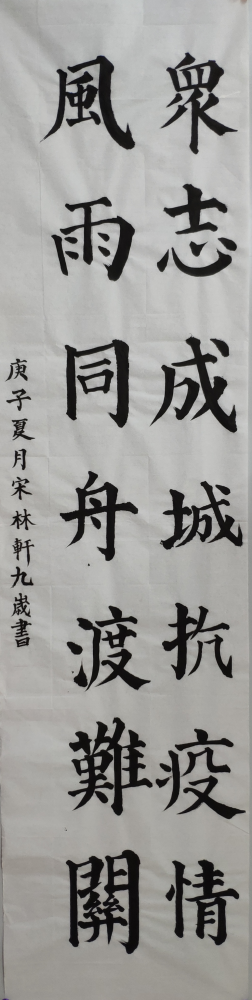 眾志成城抗疫情
風雨同舟渡難關
庚子夏月宋林軒九歲書